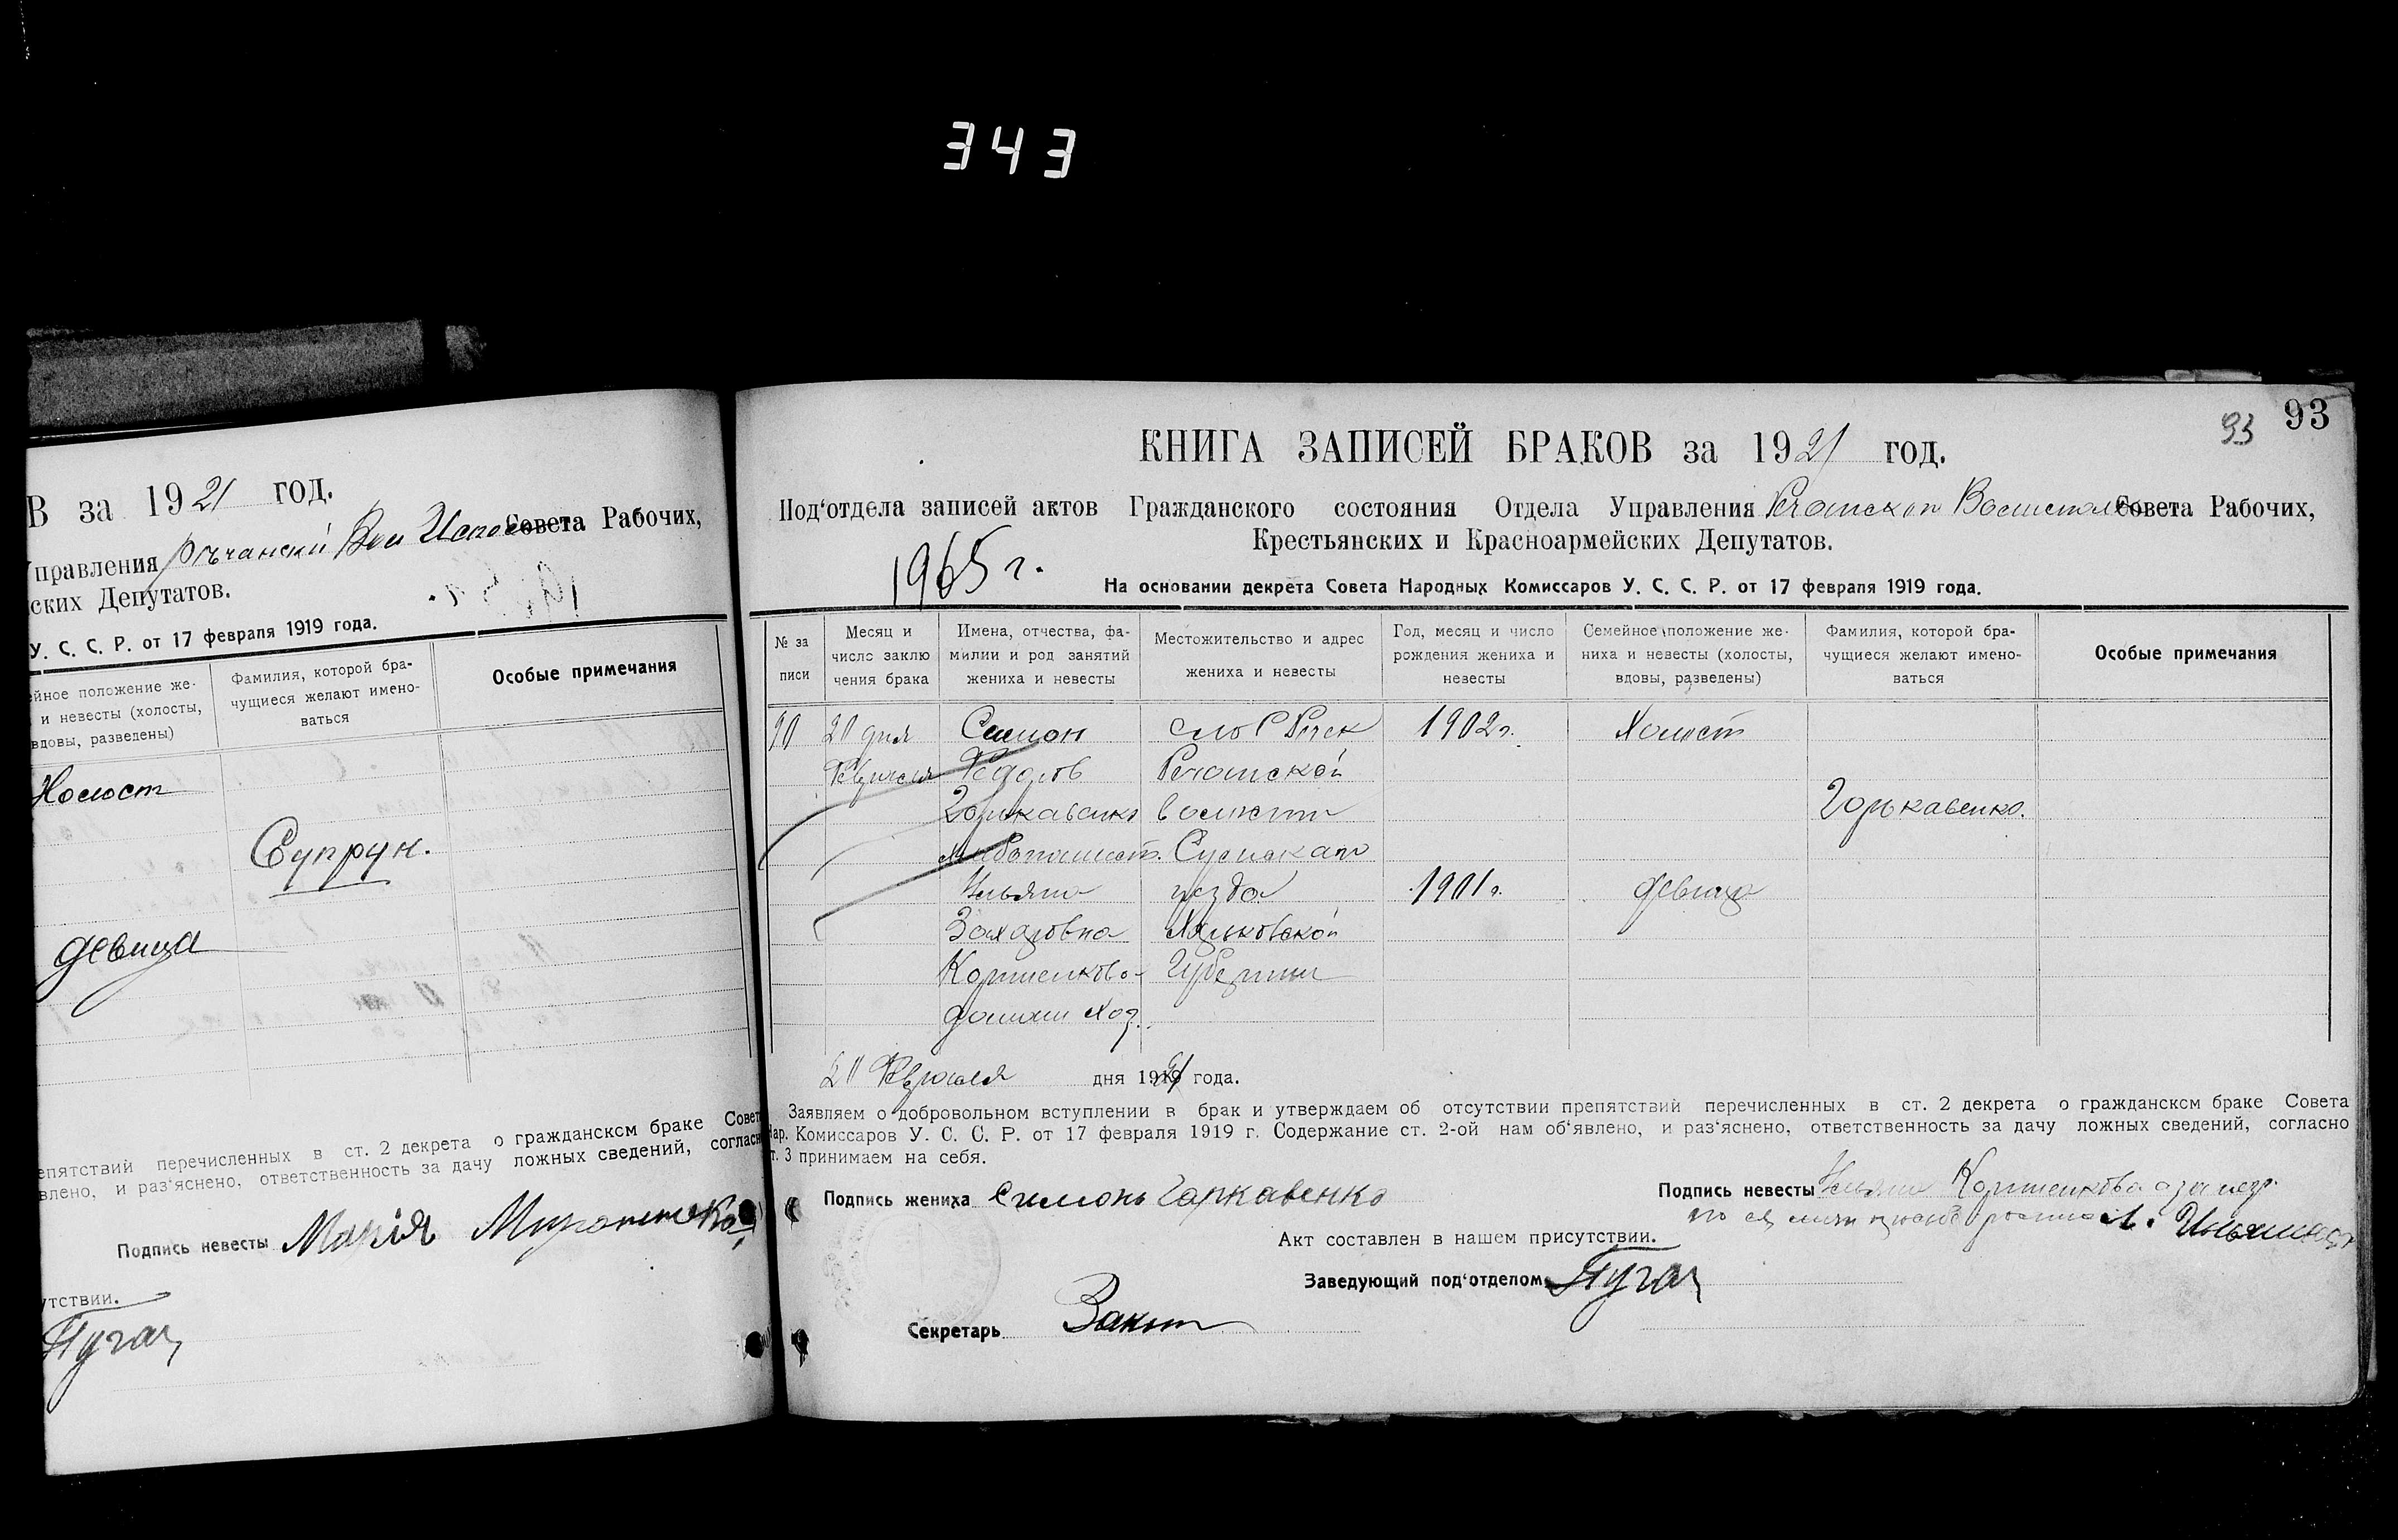 343
В за 1921 год.
правления Ръчанский Вол Испо Совета Рабочих,
ских Депутатов.
У. С. С. Р. от 17 февраля 1919 года.
ейное положение же-
и невесты (холосты,
вдовы, разведены)
Фамилия, которой бра-
чущиеся желают имено-
ваться
Особые примечания
Холост
Супрун.
девица
епятствий перечисленных в ст. 2 декрета о гражданском браке Совет
влено, и раз'яснено, ответственность за дачу ложных сведений, согласн
Подпись невесты Марія
утствии.
Пугач
93 93
КНИГА ЗАПИСЕЙ БРАКОВ за 1921 год.
Под'отдела записей актов Гражданского состояния Отдела Управления Совета Рабочих,
Крестьянских и Красноармейских Депутатов.
1965 г.
На основании декрета Совета Народных Комиссаров У. С. С. Р. от 17 февраля 1919 года.
№ за
писи
Месяц и
число заклю
чения брака
Имена, отчества, фа-
милии и род занятий
жениха и невесты
Местожительство и адрес
жениха и невесты
Год, месяц и число
рождения жениха и
невесты
Семейное положение же-
ниха и невесты (холосты,
вдовы, разведены)
Фамилия, которой бра-
чущиеся желают имено-
ваться
Особые примечания
20 дня Симон 1902 г. Холост
Февраля Федоров Речанской
Горькавенко волости Горькавенко.
Сумскаго
Ульяна уезда 1901 г. девица
Захаровна Харьковской
Губернии
домаш хоз.
20 Февраля дня 1921 года.
Заявляем о добровольном вступлении в брак и утверждаем об отсутствии препятствий перечисленных в ст. 2 декрета о гражданском браке Совета
Нар. Комиссаров У. С. С. Р. от 17 февраля 1919 г. Содержание ст. 2-ой нам об'явлено, и раз'яснено, ответственность за дачу ложных сведений, согласно
ст. 3 принимаем на себя.
Подпись жениха Симонъ Гаркавенко
Подпись невесты Ульяна а за негр.
Акт составлен в нашем присутствии.
Заведующий под'отделом Пугач
Секретарь